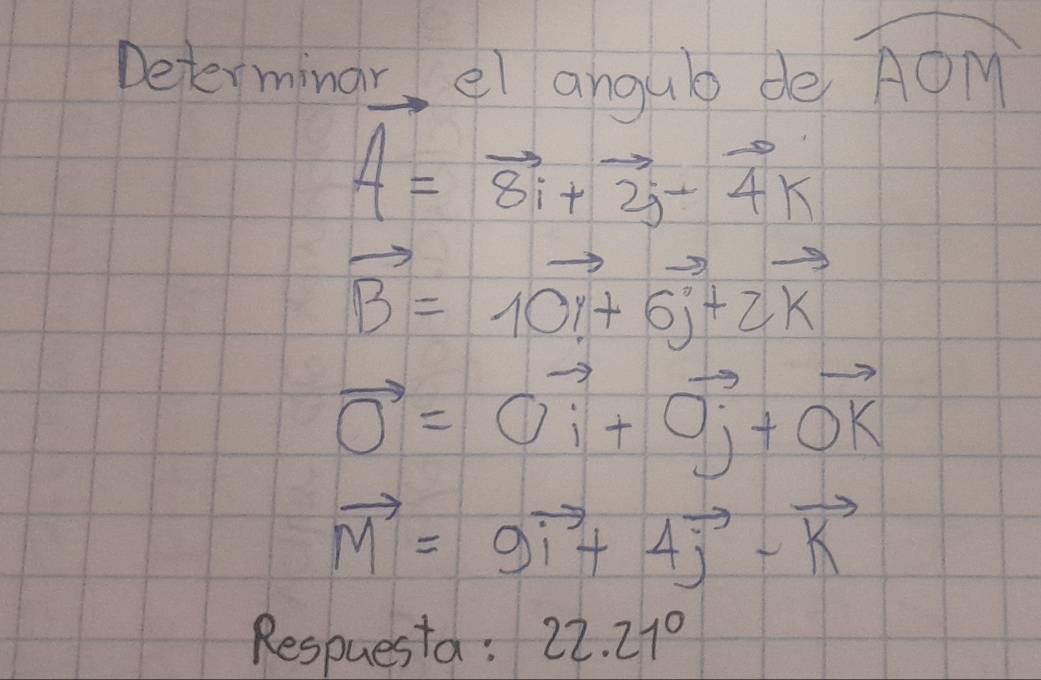 Determinar el angulo de AOM
A = 8i + 2j - 4K
B = 10i + 6j + 2K
O = 0i + 0j + 0K
M = 9i + 4j - K
Respuesta: 22.21°